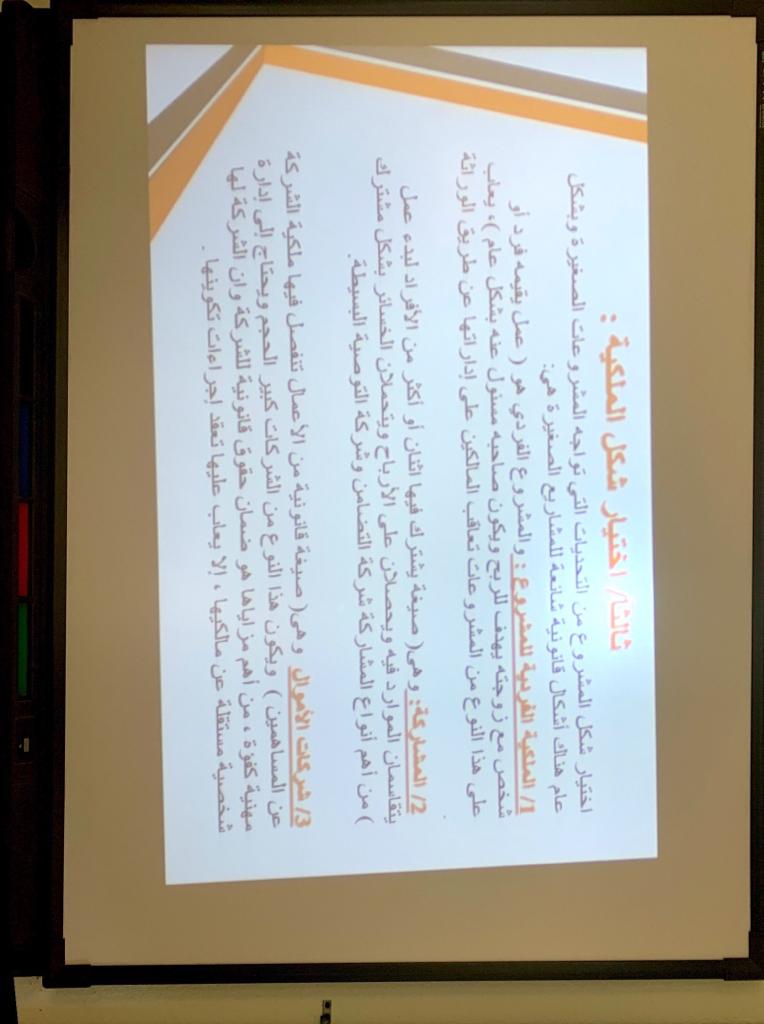 ثالثا/ اختيار شكل الملكية :
اختيار شكل المشروع من التحديات التي تواجه المشروعات الصغيرة وبشكل
عام هناك أشكال قانونية شائعة للمشاريع الصغيرة هي:
1/ الملكية الفردية للمشروع : والمشروع الفردي هو ( عمل يقيمه فرد أو
شخص مع زوجته يهدف للربح ويكون صاحبه مسئول عنه بشكل عام )، يعاب
على هذا النوع من المشروعات تعاقب المالكين على إداراتها عن طريق الوراثة
2/ المشاركة: وهى( صيغة يشترك فيها اثنان أو أكثر من الأفراد لبدء عمل
يتقاسمان الموارد فيه ويحصلان على الأرباح ويتحملان الخسائر بشكل مشترك
) من أهم أنواع المشاركة شركة التضامن وشركة التوصية البسيطة.
3/ شركات الأموال وهى( صيغة قانونية من الأعمال تنفصل فيها ملكية الشركة
عن المساهمين ) ويكون هذا النوع من الشركات كبير الحجم ويحتاج إلى إدارة
مهنية كفؤة ، من أهم مزاياها هو ضمان حقوق قانونية للشركة وان الشركة لها
شخصية مستقلة عن مالكيها ، إلا يعاب عليها تعقد إجراءات تكوينها .